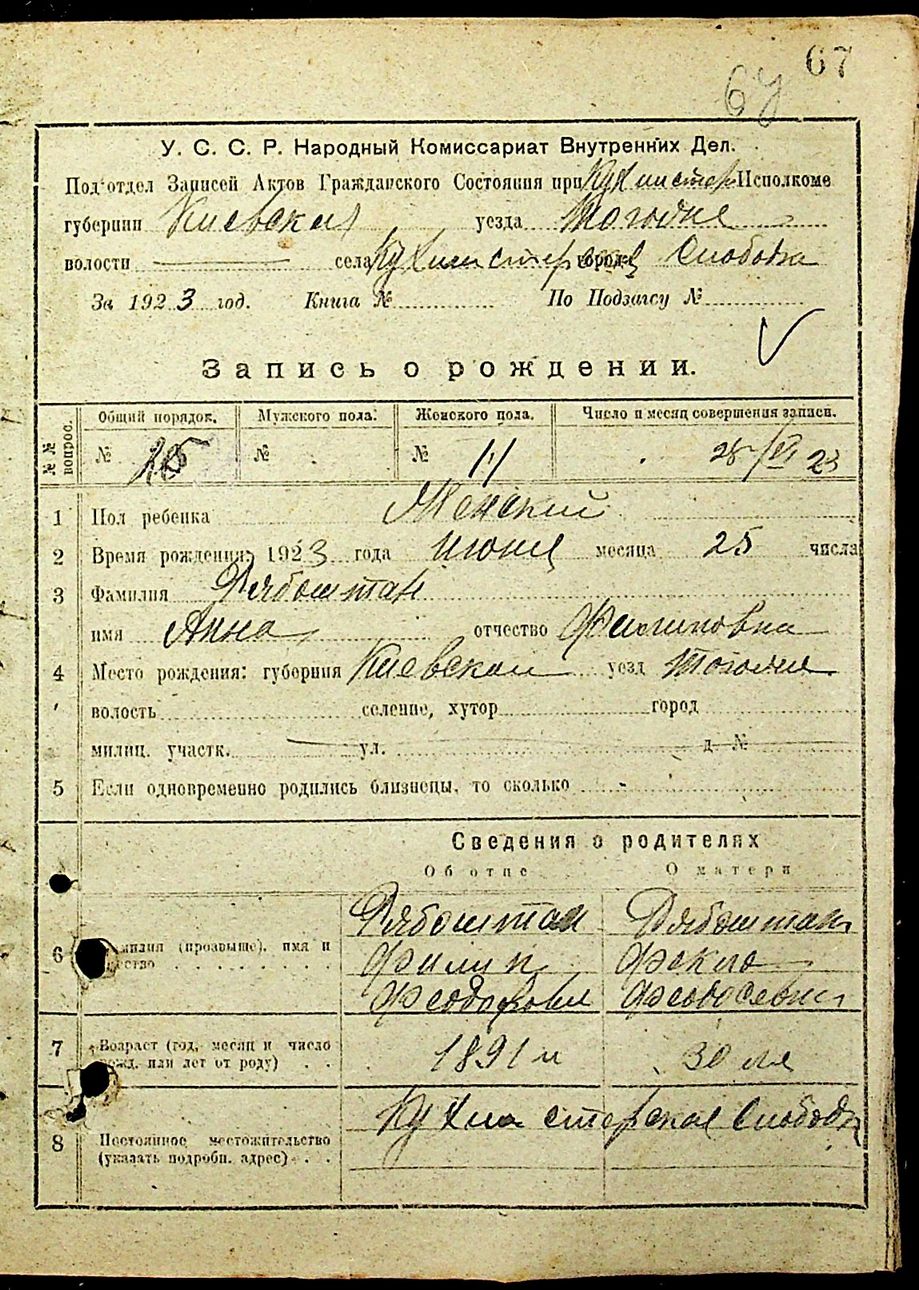 67
67
У. С. С. Р. Народный Комиссариат Внутренних Дел.
Под'отдел Записей Актов Гражданского Состояния при Кухмистер Исполкоме
губернии Киевская уезда
волости села Кухмистерская города Слободка
За 1923 год. Книга № По Подзагсу №
Запись о рождении.
№№ вопрос. Общий порядок. Мужского пола. Женского пола. Число и месяц совершения записи.
№ 25 № № 11 28/VI 23
1 Пол ребенка Женский
2 Время рождения: 1923 года июня месяца 25 числа
3 Фамилия Рябоштан
имя Анна отчество Филиповна
4 Место рождения: губерния Киевской уезд
волость селение, хутор город
милиц. участк. ул. д. №
5 Если одновременно родились близнецы, то сколько -
Сведения о родителях
Об отце О матери
6 Фамилия (прозвище), имя и отчество Рябоштан Рябоштан
Филип
Феодосевна
7 Возраст (год, месяц и число рожд. или лет от роду) 1891 30
8 Постоянное местожительство (указать подробн. адрес) Кухмистерская Слободка